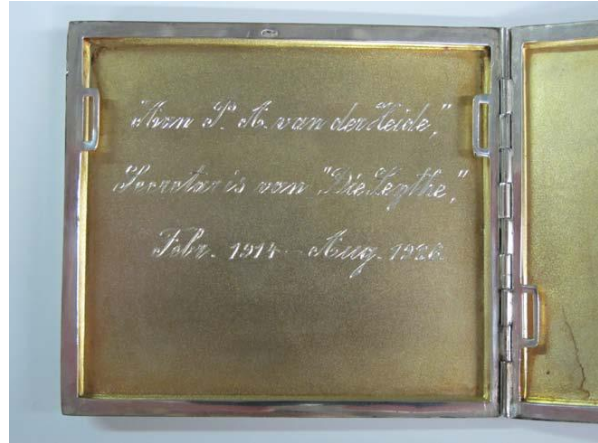 Aan P. A. van der Heide,"
Secretaris van "Die Leythe,"
Febr. 1914 – Aug. 1920